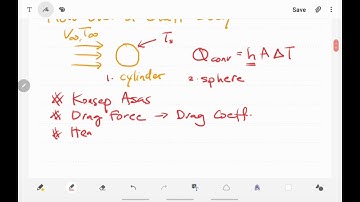 V∞, T∞
Ts
Q conv = h A ΔT
1. cylinder 2. sphere
* Konsep Asas
* Drag Force → Drag Coeff.
* Hea